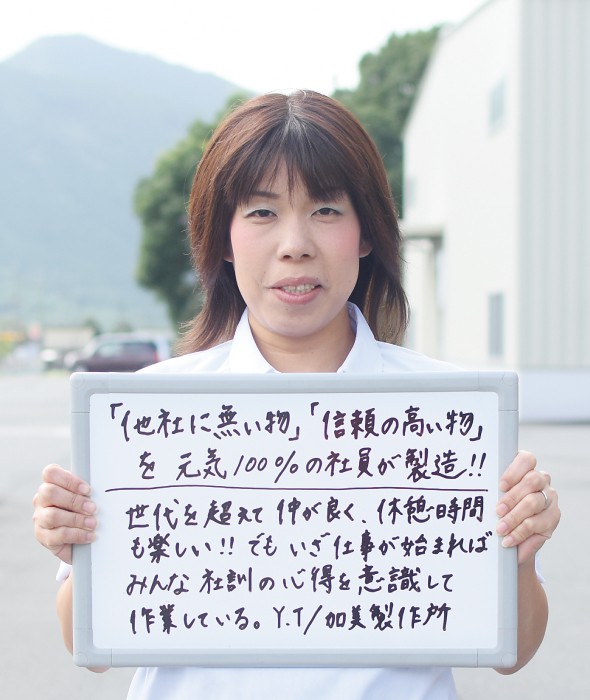 「他社に無い物」「信頼の高い物」
を 元気100%の社員が製造!!
世代を超えて仲が良く、休憩時間
も楽しい!! でもいざ仕事が始まれば
みんな社訓の心得を意識して
作業している。Y.T/加美製作所